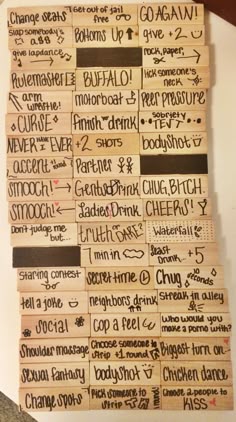 Change seats
Get out of jail free
GO AGAIN!
slap somebody's a$$
Bottoms Up
give +2
give lapdance
rock, paper,
Rulemaster
BUFFALO!
lick someone's neck
arm wrestle!
motorboat
Peer Pressure
CURSE
finish drink
sobriety TEST
NEVER HAVE EVER
+2 SHOTS
bodyshot
accent
Partner
SMOOCH!
Gents Drink
CHUG, BITCH.
SMOOCH!
Ladies Drink
CHEERS!
Don't judge me but...
truth OR DARE?
Waterfall
1 min in
Least drunk +5
staring contest
secret time
Chug 10 seconds
tell a joke
neighbors drink
Streak in alley
social
cop a feel
Who would you make a porno with?
Shoulder massage
Choose someone to strip +1 round
Biggest turn on
Sexual fantasy
bodyshot
Chicken dance
Change spots
Pick someone to strip
Choose 2 people to KISS